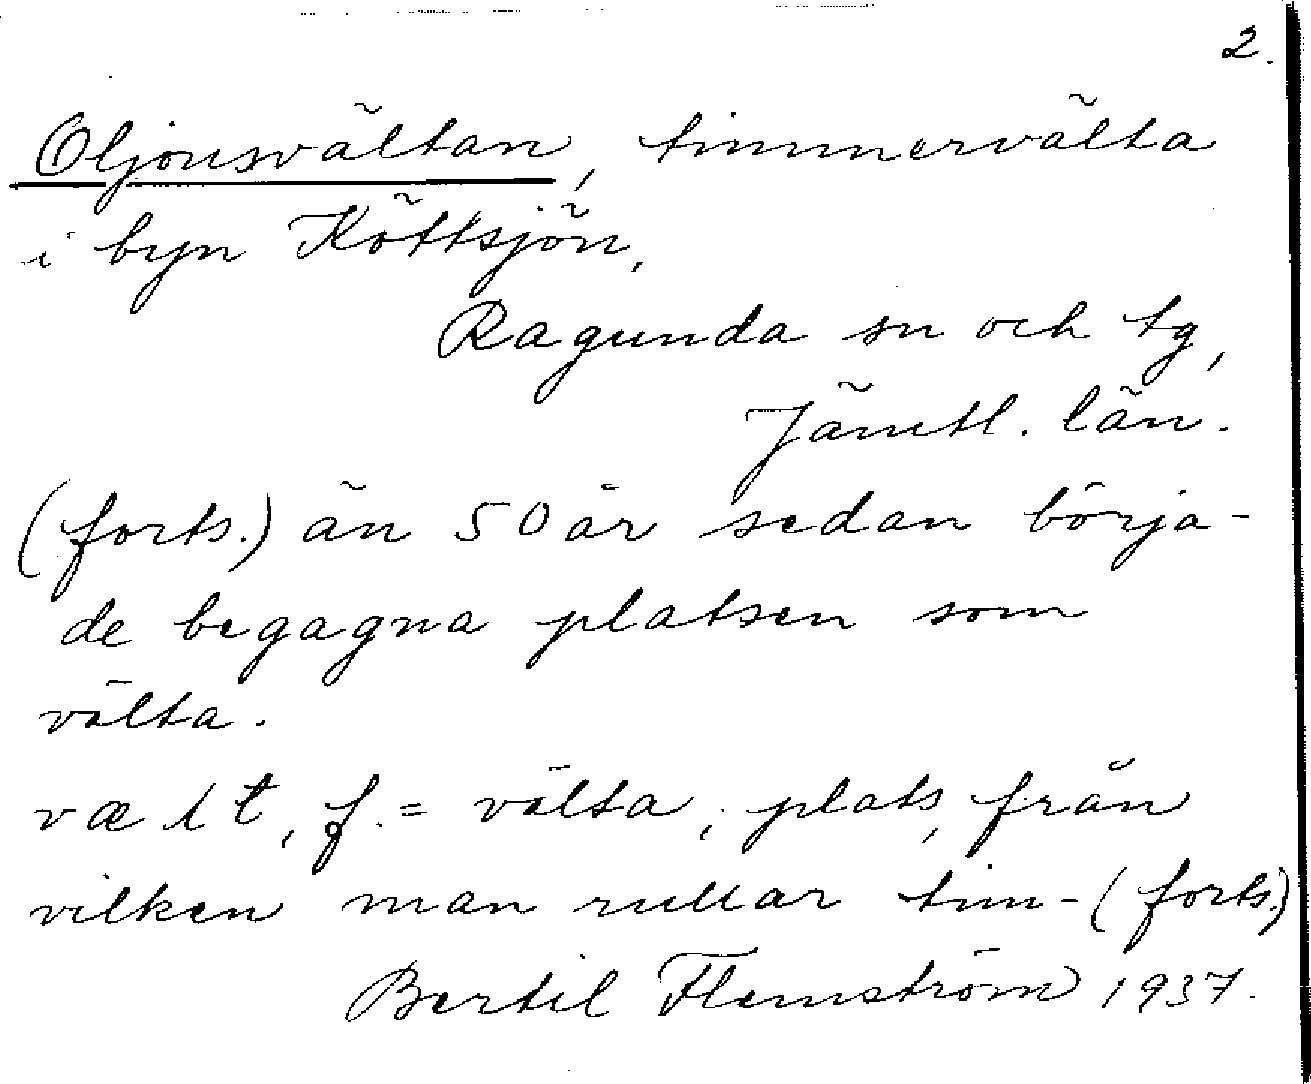 2.
Oljonsvältan, timmervälta
i byn Köttsjön,
Ragunda sn och tg,
Jämtl. län.
(forts.) än 50 år sedan börja-
de begagna platsen som
välta.
væ lt, f. = välta, plats, från
vilken man rullar tim- (forts.)
Bertil Flemström 1937.